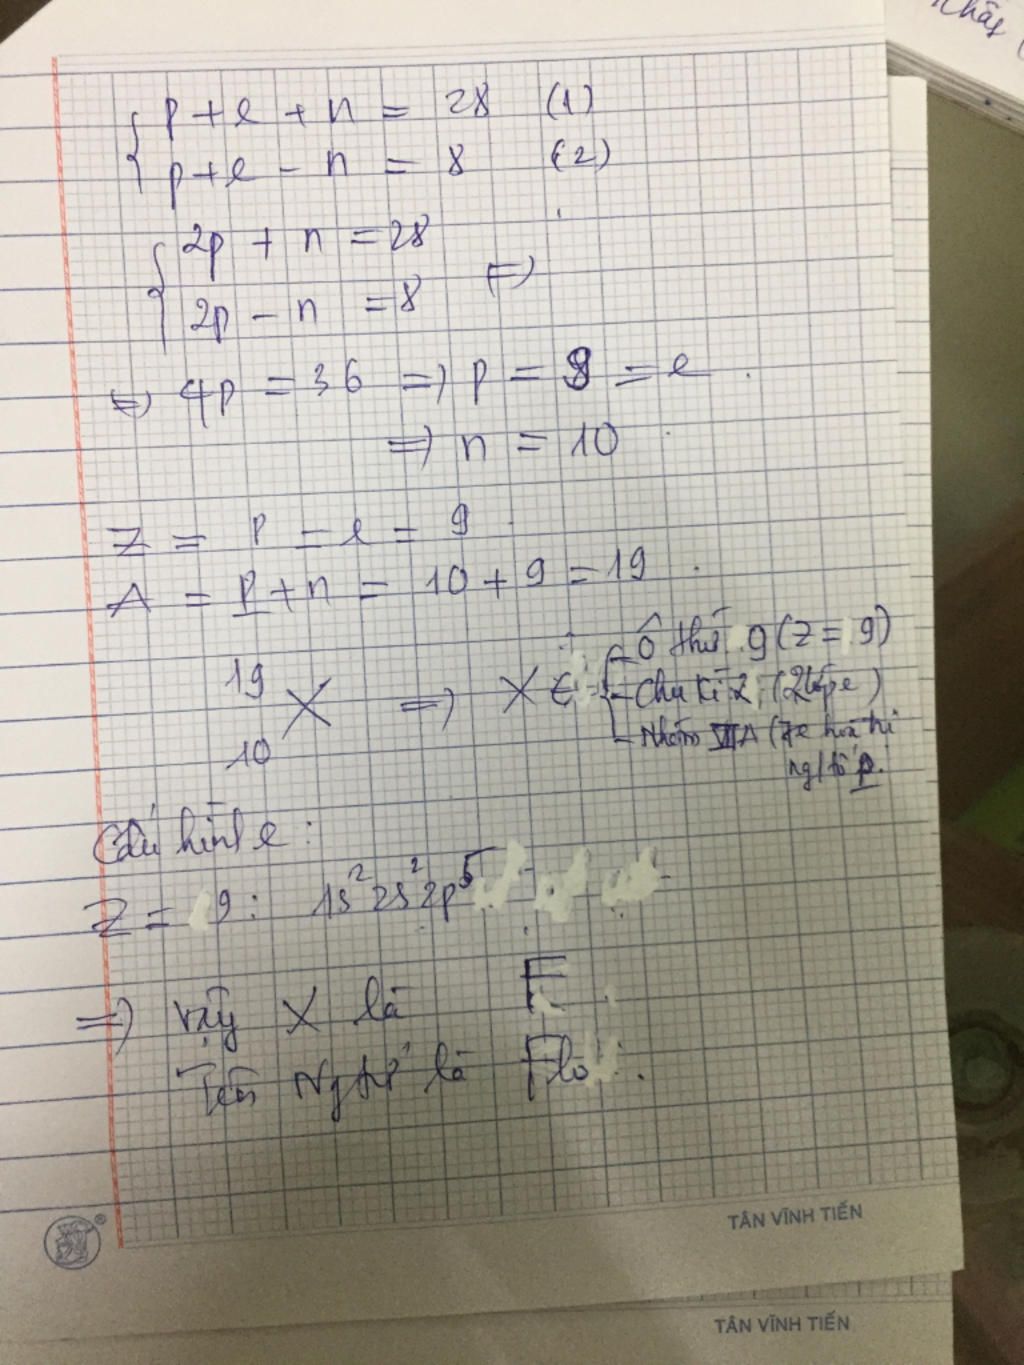 p + e + n = 28 (1)
p + e - n = 8 (2)
2p + n = 28
2p - n = 8 ⇒
⇒ 4p = 36 ⇒ p = 9 = e.
⇒ n = 10
Z = p = e = 9
A = p + n = 10 + 9 = 19.
19
X ⇒ X ∈
10
- Ô thứ 9 (Z = 9)
- Chu kì 2 (2 lớp e)
- Nhóm VIIA (7e hoá trị
ng/tố p.
Cấu hình e:
Z = 9: 1s² 2s² 2p⁵
⇒ Vậy X là F
Tên Ng/tố là Flo.
TÂN VĨNH TIẾN
TÂN VĨNH TIẾN